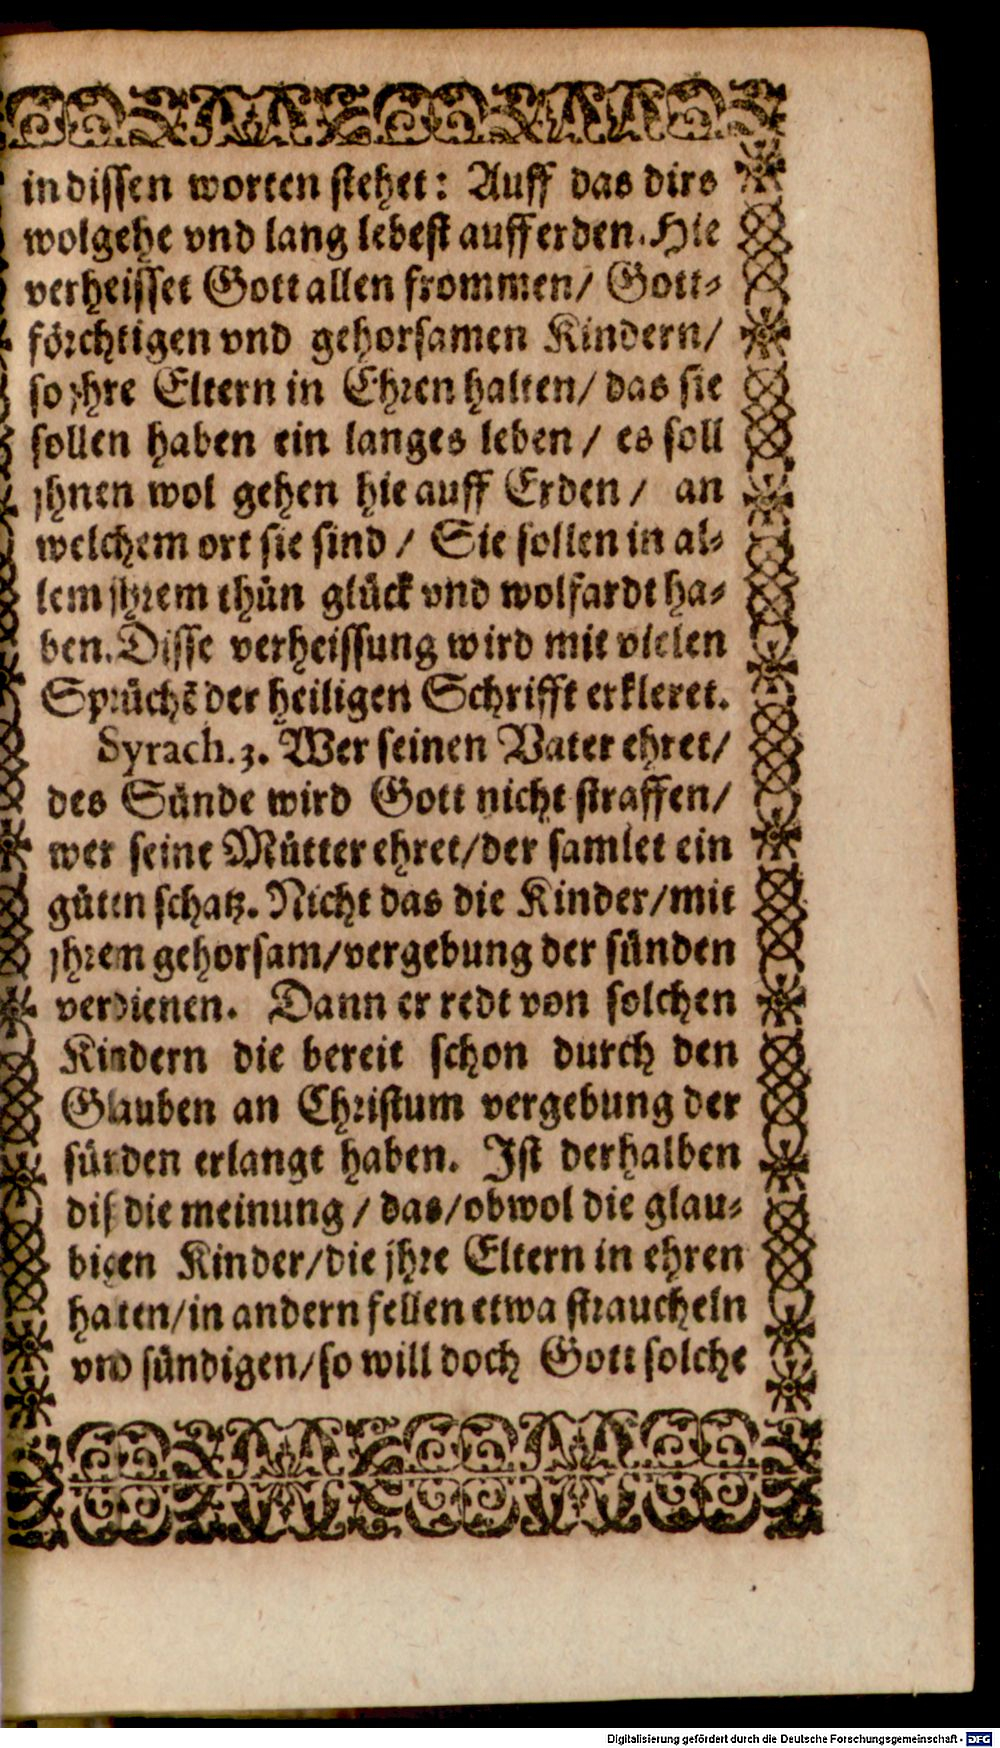 in dissen worten stehet: Auff das dirs
wolgehe vnd lang lebest auff erden. Hie
verheisset Gott allen frommen/ Gott-
förchtigen vnd gehorsamen Kindern/
so jhre Eltern in Ehren halten/ das sie
sollen haben ein langes leben / es soll
jhnen wol gehen hie auff Erden / an
welchem ort sie sind / Sie sollen in al-
lem jhrem thün glück vnd wolfardt ha-
ben. Disse verheissung wird mit vielen
Sprüchē der heiligen Schrifft erkleret.
Syrach. 3. Wer seinen Vater ehret/
des Sünde wird Gott nicht straffen/
wer seine Mütter ehret/der samlet ein
güten schatz. Nicht das die Kinder/mit
jhrem gehorsam/vergebung der sünden
verdienen. Dann er redt von solchen
Kindern die bereit schon durch den
Glauben an Christum vergebung der
sünden erlangt haben. Ist derhalben
diß die meinung / das/obwol die glau-
bigen Kinder/die jhre Eltern in ehren
halten/in andern fellen etwa straucheln
vnd sündigen/so will doch Gott solche
Digitalisierung gefördert durch die Deutsche Forschungsgemeinschaft - DFG